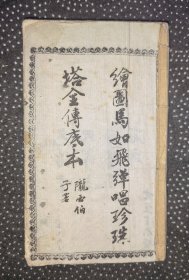 繪圖馬如飛彈唱珍珠
塔全傳底本
隴西伯
子署